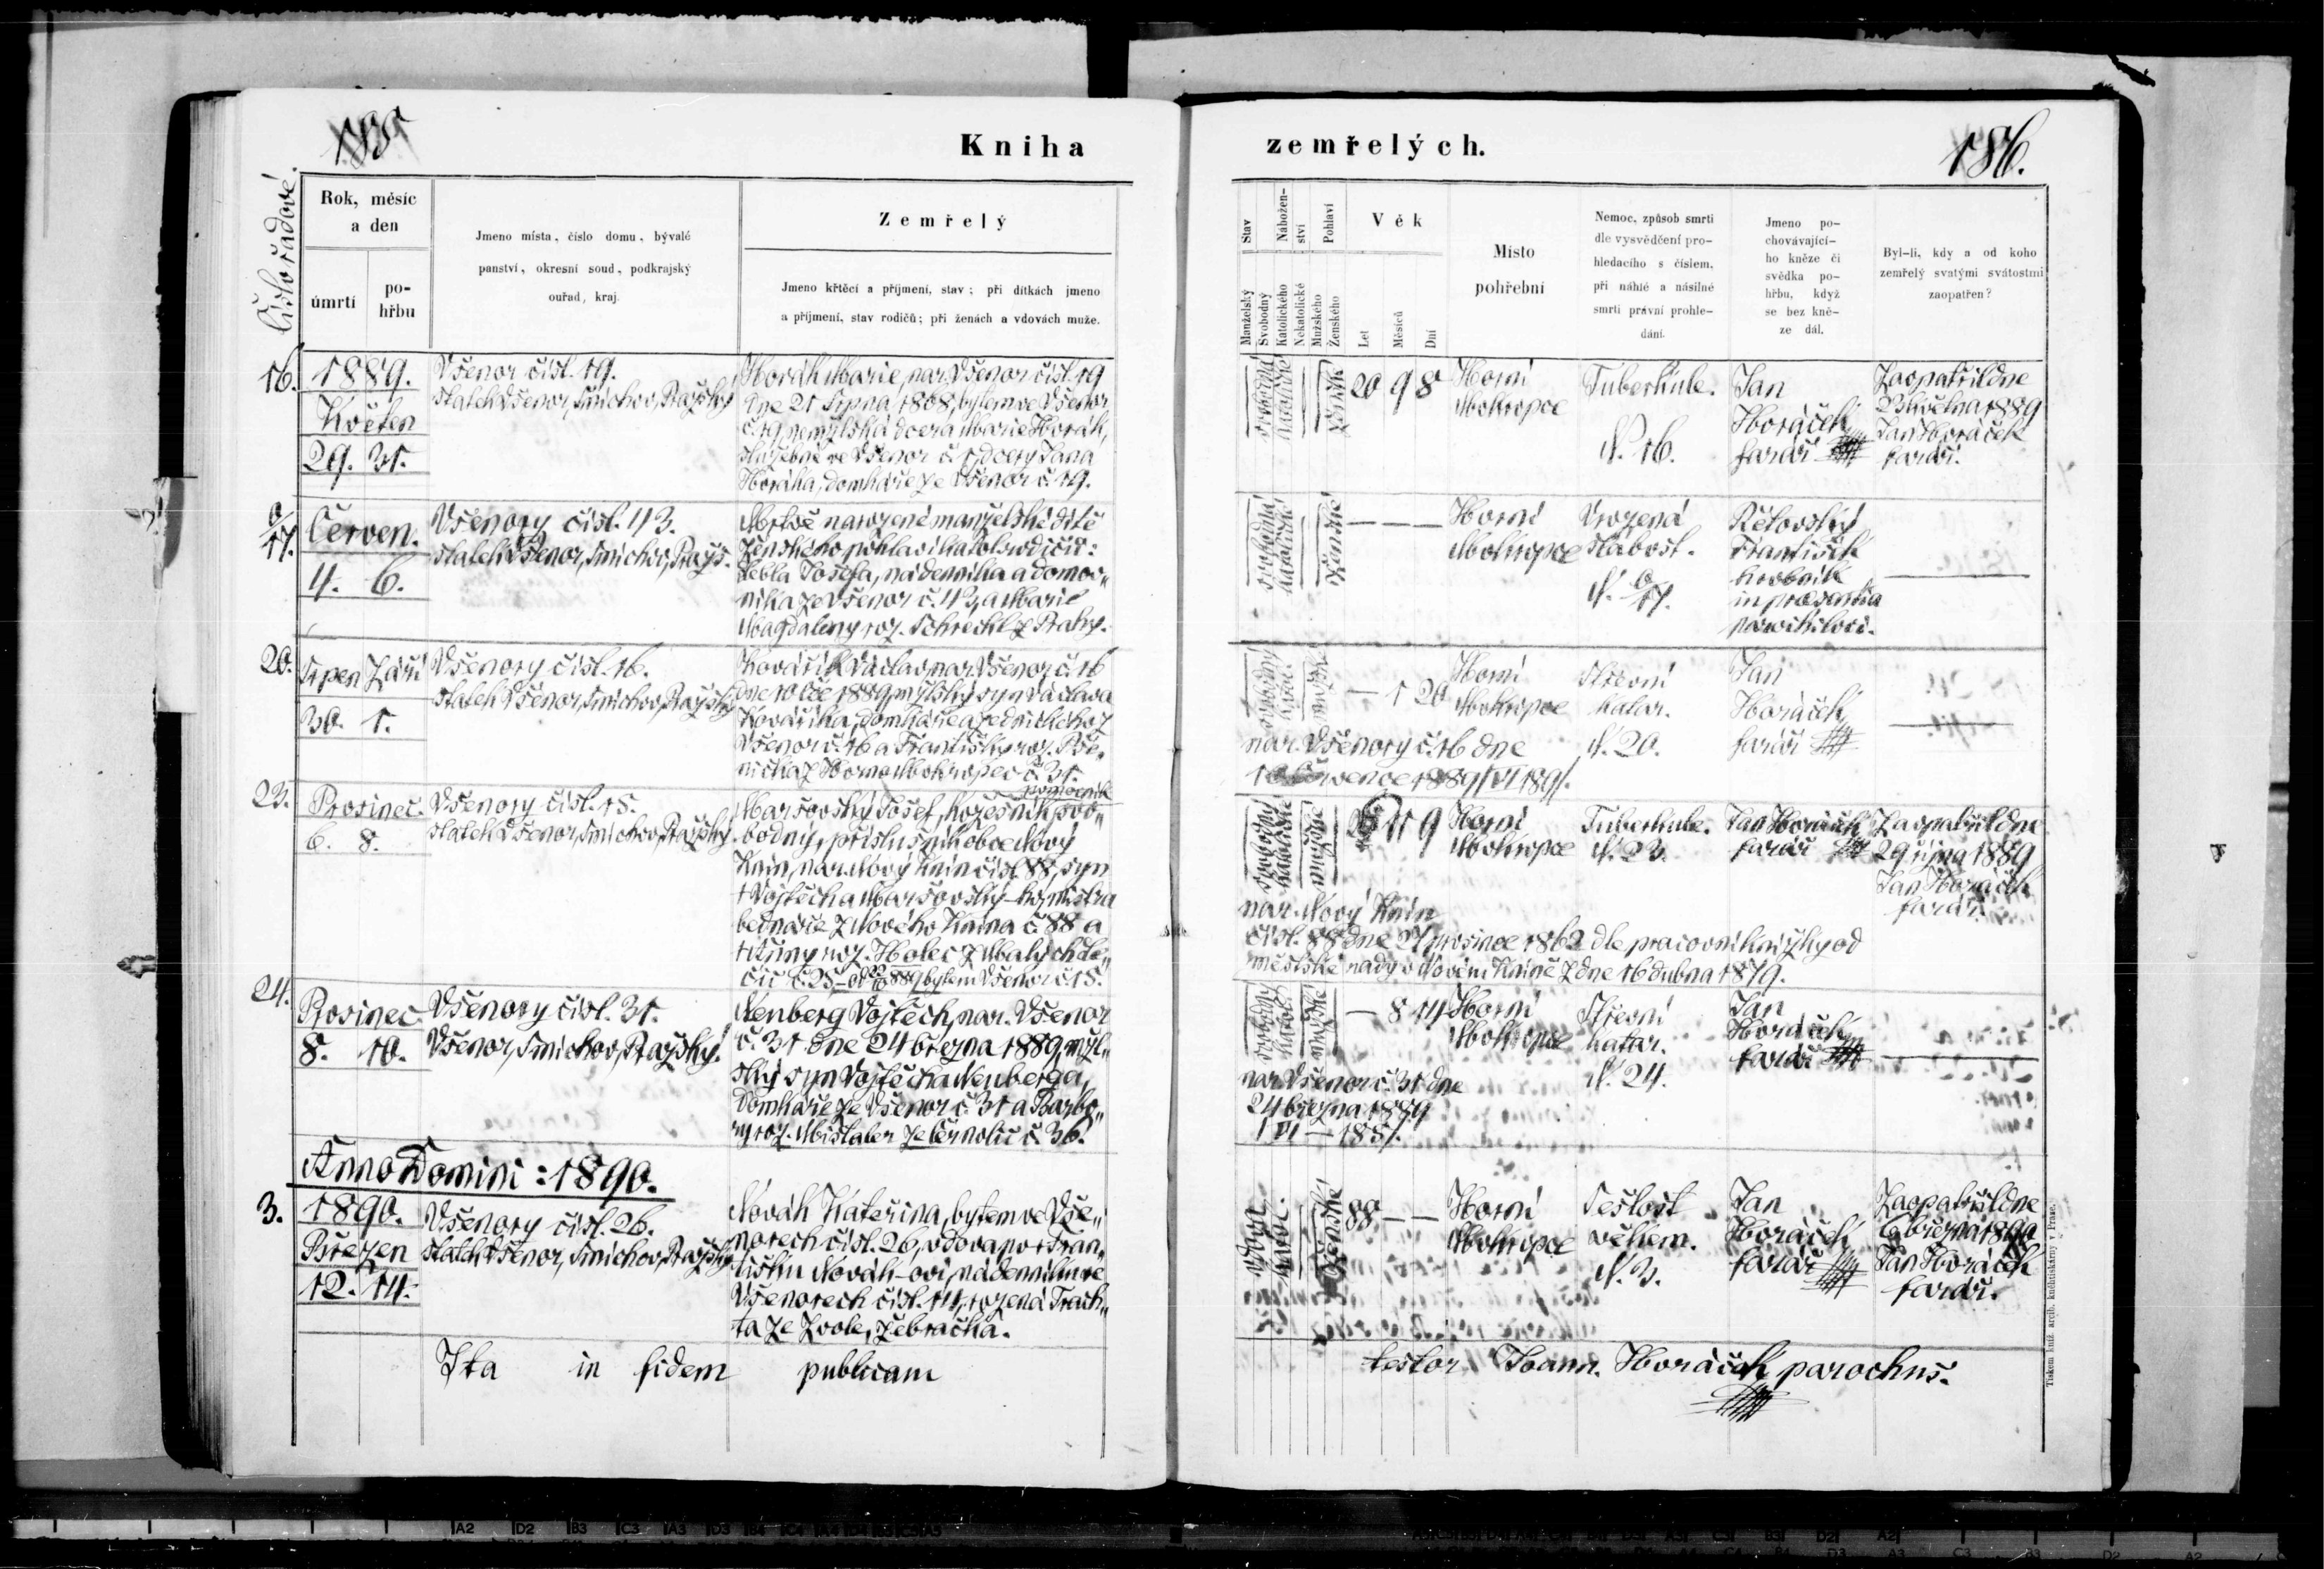 185
Kniha
Číslo řadové.
Rok, měsíc
a den
úmrtí
po-
hřbu
Jmeno místa, číslo domu, bývalé
panství, okresní soud, podkrajský
ouřad, kraj.
Zemřelý
Jmeno křtěcí a příjmení, stav; při dítkách jmeno
a příjmení, stav rodičů; při ženách a vdovách muže.
16.
1889.
Květen
29. 31.
Všenor čísl. 19.
statek Všenor, Smíchov, Pražský
Horák Marie, nar. Všenor čísl. 19
dne 21 srpna 1868, bytem ve Všenor
č. 19, nemanželská dcera Marie Horák,
služebné ve Všenor č. dcery Jana
Horáka, domkáře ze Všenor č. 19.
0/17.
Červen.
4. 6.
Všenory čísl. 43.
statek Všenor, Smíchov, Praž.
Mrtvě narozené manželské dítě
ženského pohlaví katol. rodičů:
Josefa, nádenníka a domov„
níka ze Všenor č. 43, a Marie
Magdaleny roz. z Prahy.
20.
Srpen Září
30. 1.
Všenory čísl. 16.
statek Všenor, Smíchov, Pražský
Kovařík Václav, nar. Všenor č. 16
dne 10 čce 1889, mžlský syn Václava
Kovaříka, domkáře a zedníka z
Všenor č. 16 a Františky roz. Pše„
nička z Horno Mokropec č. 31.
23.
Prosinec.
6. 8.
Všenory čísl. 15.
statek Všenor, Smíchov, Pražský.
pomocník
Maršovský Josef, kožešník svo„
bodný, příslušník obce Nový
Knín, nar. Nový Knín čísl. 88, syn
† Vojtěcha Maršovský
bednáře z Nového Knína č. 88 a
† Anny roz. Holec z Malých Le„
čic č. 25 - od 889 bytem Všenor č. 15.
24.
Prosinec
8. 10.
Všenory čísl. 31.
Všenor, Smíchov, Pražský.
Nenberg Vojtěch, nar. Všenor
č. 31 dne 24 března 1889, mžl„
ský syn Vojtěcha Nenberga,
domkáře ze Všenor č. 31 a Barbo„
ry roz. z Černolic č. 36.
Anno Domini: 1890.
3.
1890.
Březen
12. 14.
Všenory čísl. 26.
statek Všenor, Smíchov, Pražský
Novák Kateřina, bytem ve Vše„
norech čísl. 26, vdova po Fran„
tišku Novák-ovi, nádenníku ve
Všenorech čísl. 14, rozená Trach„
ta ze Zvole, žebračka.
Ita in fidem publicam
zemřelých.
186.
Stav
Nábožen-
ství
Pohlaví
Věk
Manželský
Svobodný
Katolického
Nekatolické
Mužského
Ženského
Let
Měsíců
Dní
Místo
pohřební
Nemoc, způsob smrti
dle vysvědčení pro-
hledacího s číslem,
při náhlé a násilné
smrti právní prohle-
dání.
Jmeno po-
chovávající-
ho kněze či
svědka po-
hřbu, když
se bez kně-
ze dál.
Byl-li, kdy a od koho
zemřelý svatými svátostmi
zaopatřen?
svobodná
katolické
ženské
20 9 8
Horní
Mokropce
Tuberkule.
N. 16.
Jan
Horáček
farář
Zaopatřil dne
května 1889
Jan Horáček
farář.
svobodná
katolické
ženské
— — —
Horní
Mokropce
Vrozená
slabost.
N. 0/17.
František
hrobník
in praesentia
parochi loci.
svobodný
katol.
mužské
— 1 20
Horní
Mokropce
Střevní
katar.
N. 20.
Jan
Horáček
farář
nar. Všenory č. 16 dne
10 července 1889
svobodný
katolické
mužské
11 9
Horní
Mokropce
Tuberkule.
N. 23.
Jan Horáček
farář
Zaopatřil dne
29 října 1889
Jan Horáček
farář.
nar. Nový Knín
čísl. 88 dne 27 prosince 1862 dle pracovní knížky od
městské rady v Novém Kníně z dne 16 dubna 1879.
svobodný
katol.
mužské
— 8 14
Horní
Mokropce
Střevní
katar.
N. 24.
Jan
Horáček
farář
nar. Všenor č. 31 dne
24 března 1889
vdova.
katol.
ženské
88 — —
Horní
Mokropce
Sešlost
věkem.
N. 3.
Jan
Horáček
farář
Zaopatřil dne
6 března 1890
Jan Horáček
farář.
testor Joann. Horáček, parochus.
Tiskem kníž. arcib. knihtiskárny v Praze.